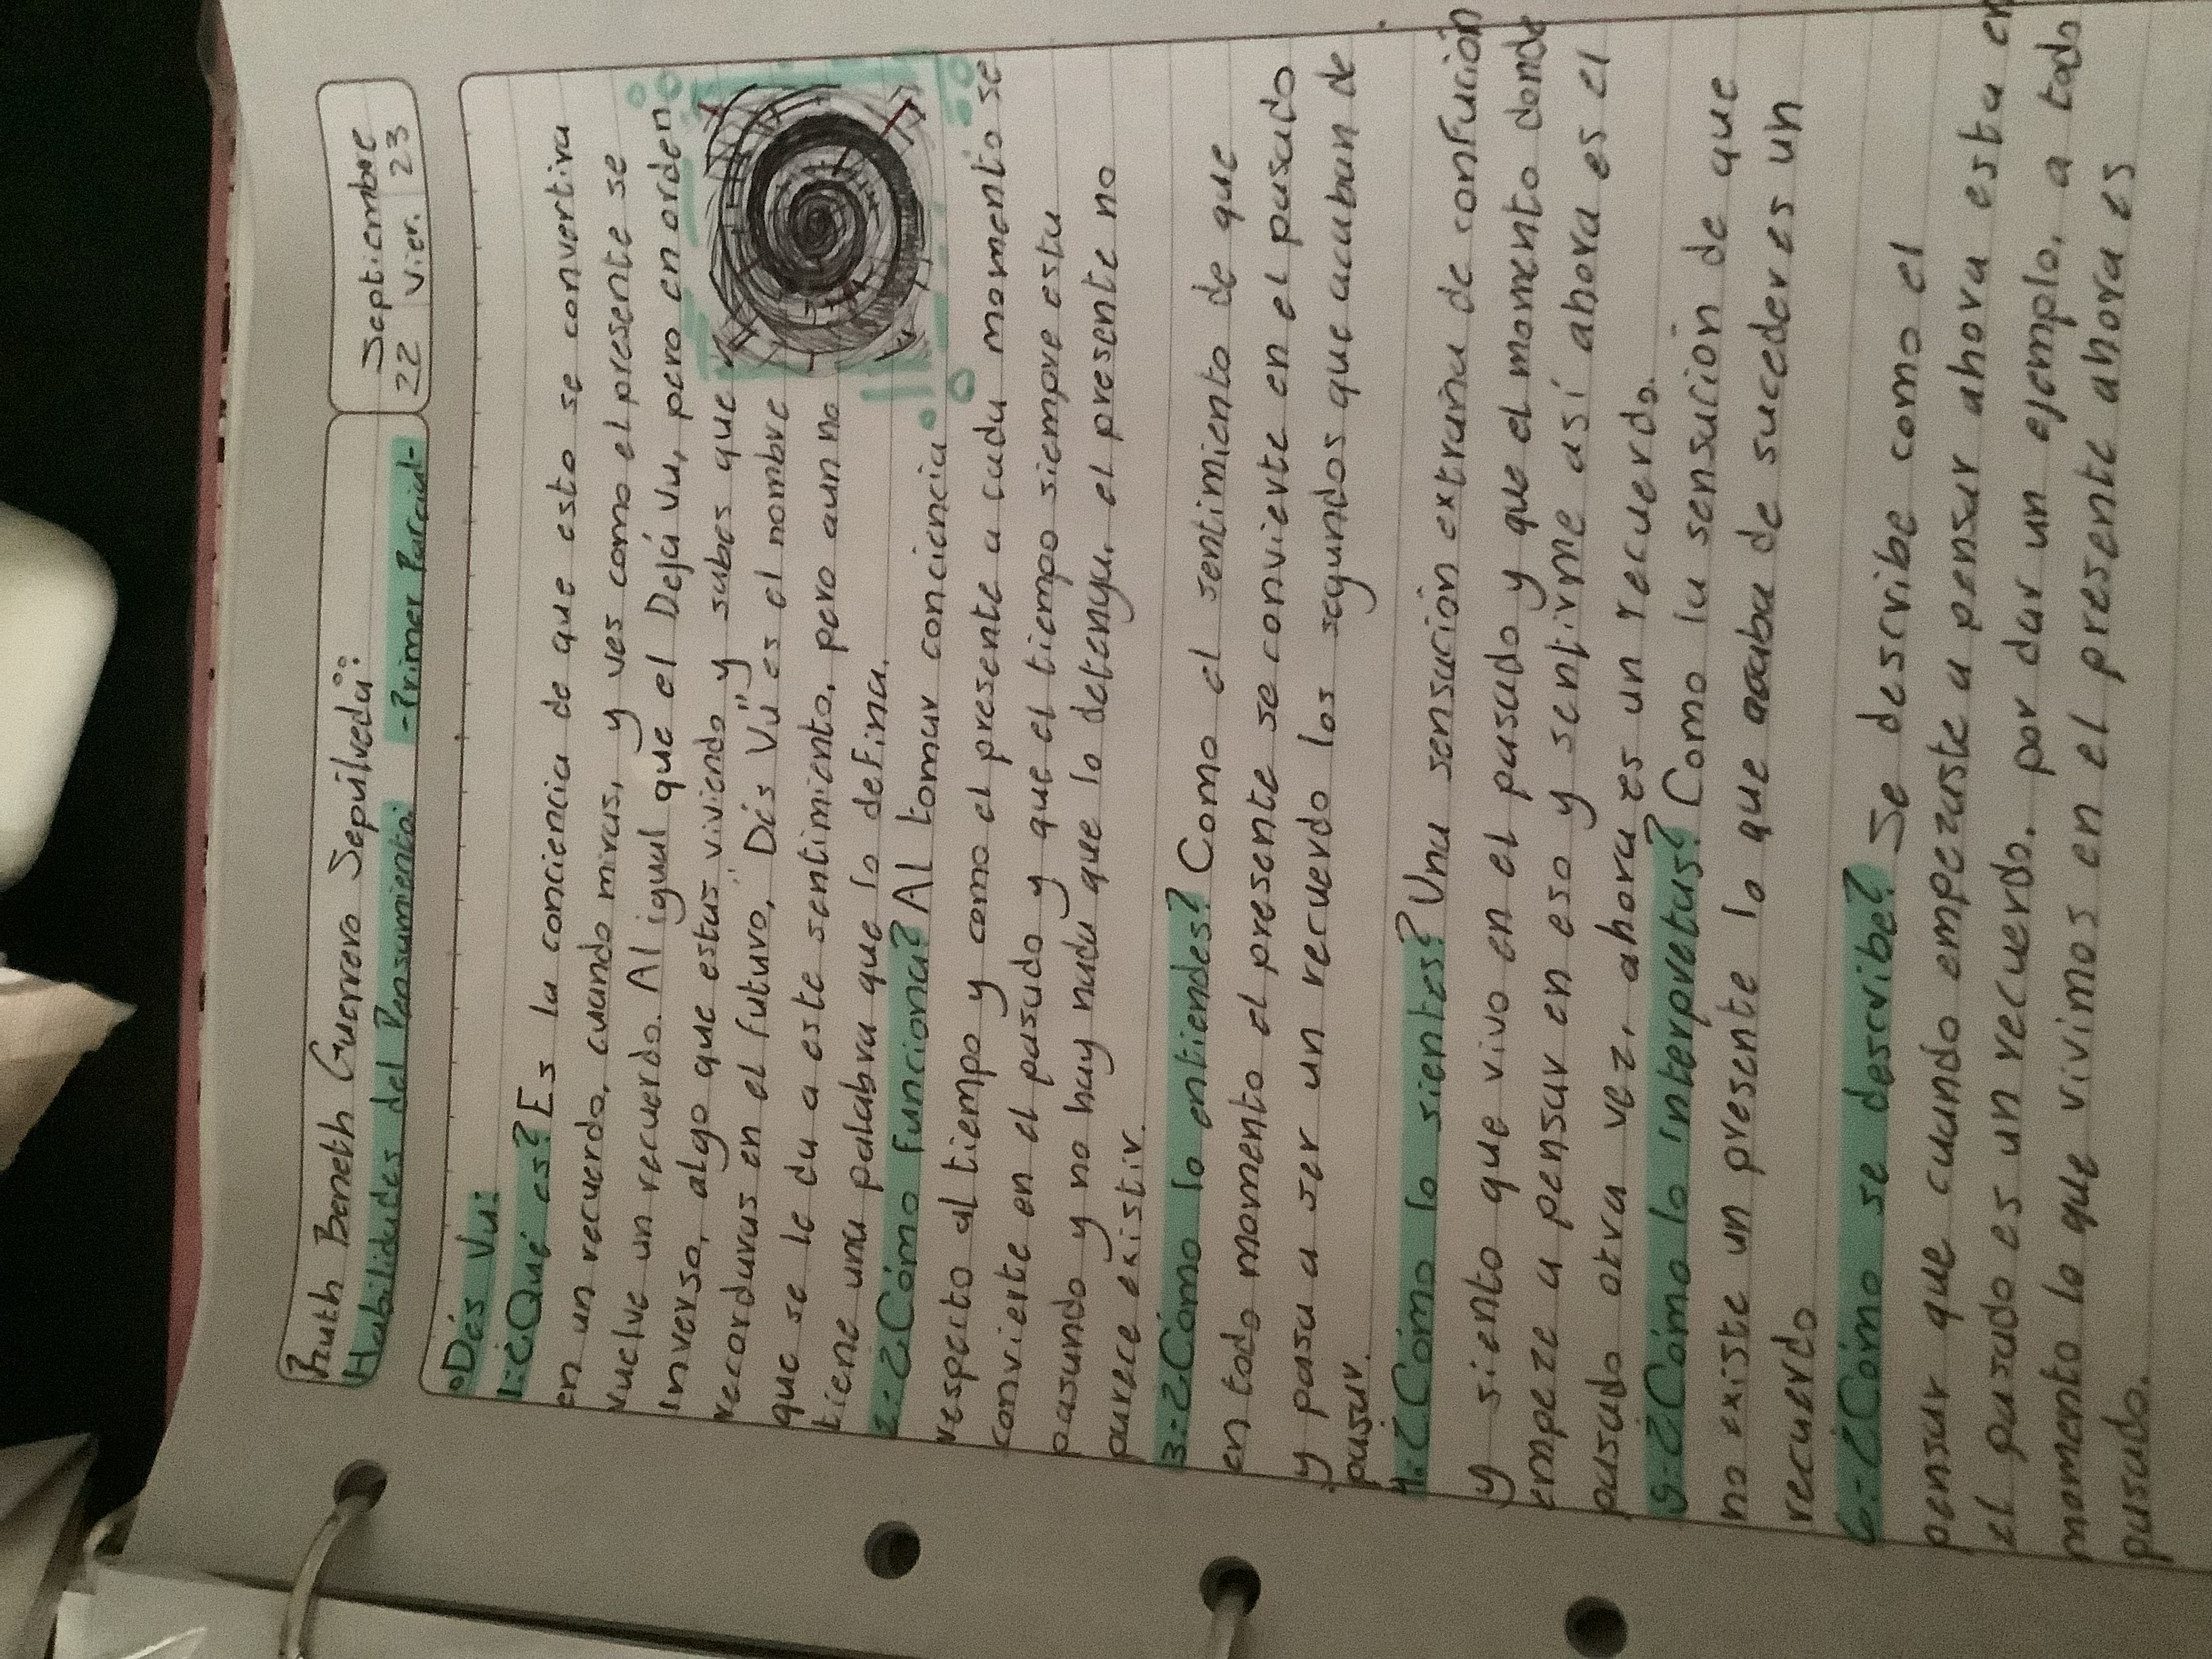 Ruth Beneth Guerrero Sepúlveda:
Septiembre
Habilidades del Pensamiento: -Primer Parcial-
22 Vier. 23
°Dés Vu:
1.-¿Qué es? Es la conciencia de que esto se convertira
en un recuerdo, cuando miras, y ves como el presente se
vuelve un recuerdo. Al igual que el Dejá Vu, pero en orden
inverso, algo que estas viviendo y sabes que
recordaras en el futuro, "Dés Vu" es el nombre
que se le da a este sentimiento, pero aun no
tiene una palabra que lo defina.
2.-¿Cómo funciona? Al tomar conciencia
respecto al tiempo y como el presente a cada momento se
convierte en el pasado y que el tiempo siempre esta
pasando y no hay nada que lo detenga, el presente no
parece existir.
3.-¿Cómo lo entiendes? Como el sentimiento de que
en todo momento el presente se convierte en el pasado
y pasa a ser un recuerdo los segundos que acaban de
pasar.
4.-¿Cómo lo sientes? Una sensación extraña de confución
y siento que vivo en el pasado y que el momento donde
empeze a pensar en eso y sentirme así ahora es el
pasado otra vez, ahora es un recuerdo.
5.-¿Cómo lo interpretas? Como la sensación de que
no existe un presente lo que acaba de suceder es un
recuerdo
6.-¿Cómo se describe? Se describe como el
pensar que cuando empezaste a pensar ahora esta en
el pasado es un recuerdo, por dar un ejemplo, a todo
momento lo que vivimos en el presente ahora es
pasado.